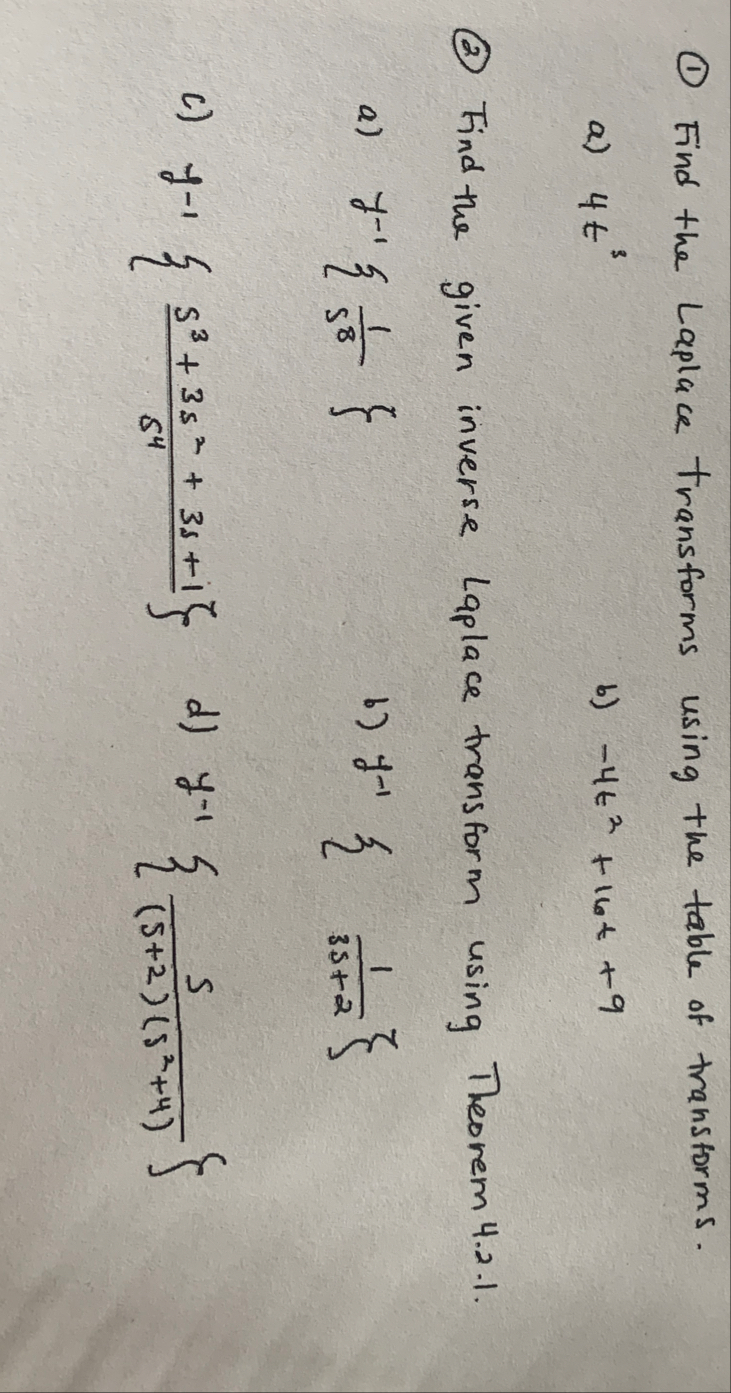 ① Find the Laplace transforms using the table of transforms.
a) 4t³ b) -4t² + 16t + 9
② Find the given inverse Laplace transform using Theorem 4.2.1.
a) y-1 { 1/s8 } b) y-1 { 1/3s+2 }
c) y-1 { s³ + 3s² + 3s + 1/s⁴ } d) y-1 { s/(s+2)(s²+4) }